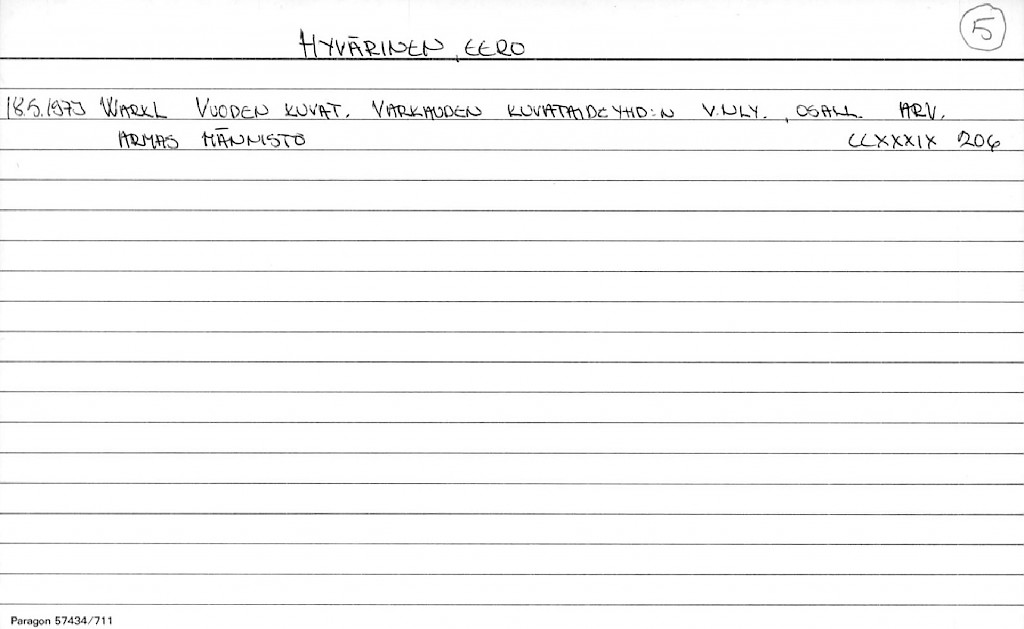 5
HYVÄRINEN, EERO
18.5.1973 WARKL VUODEN KUVAT. VARKAUDEN KUVATAIDEYHD:N V.NLY., OSALL. ARV.
ARMAS MÄNNISTÖ CCXXXIX 206
Paragon 57434/711